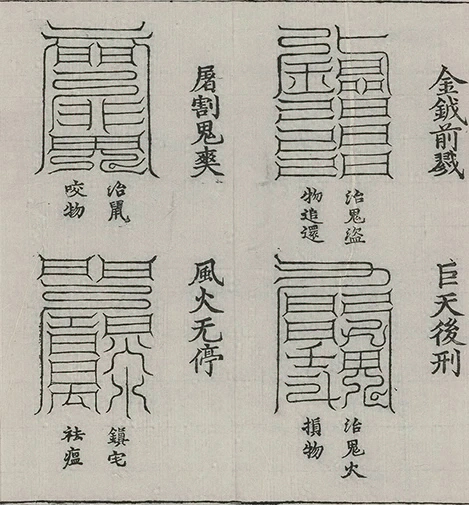 金鉞前戮
治鬼盜
物追還
巨天後刑
治鬼火
損物
屠割鬼爽
治鼠
咬物
風火无停
鎮宅
祛瘟